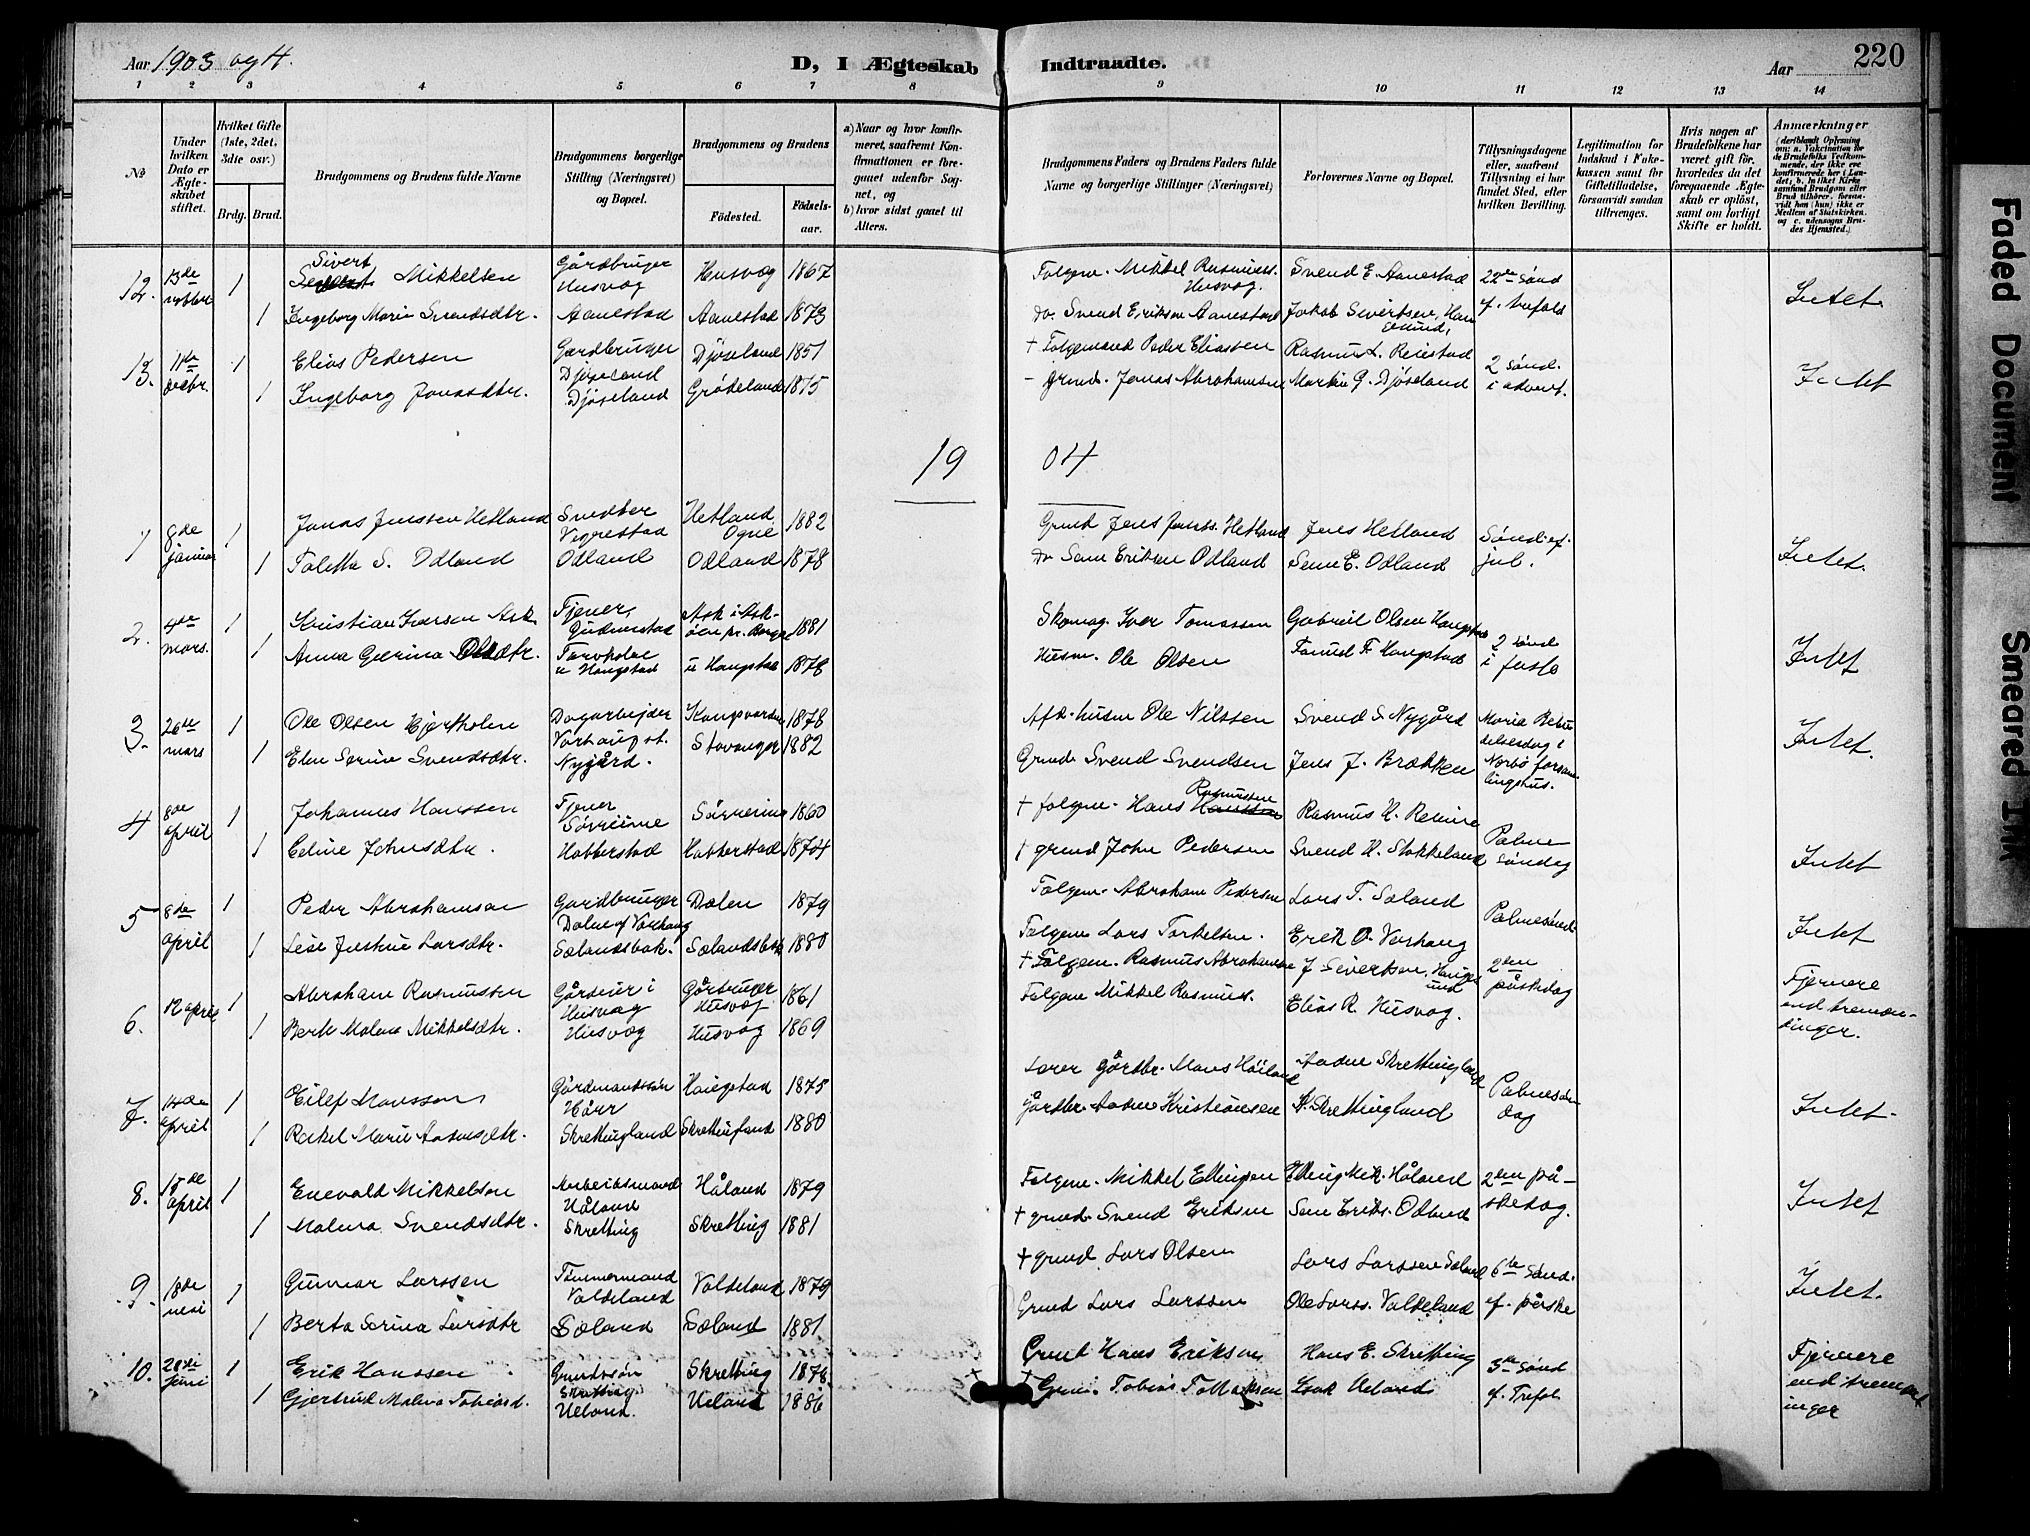 Aar 1903 og 4.
D, I Ægteskab Indtraadte.
Aar
220
1 2 3 4 5 6 7 8 9 10 11 12 13 14
No
Under hvilken Dato er Ægteskabet stiftet.
Hvilket Gifte (1ste, 2det, 3die osv.)
Brdg. Brud.
Brudgommens og Brudens fulde Navne
Brudgommens borgerlige Stilling (Næringsvei) og Bopæl.
Brudgommens og Brudens
Fødested.
Fødsels-aar.
a) Naar og hvor konfirmeret, saafremt Konfirmationen er foregaaet udenfor Sognet, og
b) hvor sidst gaaet til Alters.
Brudgommens Faders og Brudens Faders fulde Navne og borgerlige Stillinger (Næringsvei)
Forlovernes Navne og Bopæl.
Tillysningsdagene eller, saafremt Tillysning ei har fundet Sted, efter hvilken Bevilling.
Legitimation for Indskud i Enkekassen samt for Giftetilladelse, forsaavidt saadan tiltrænges.
Hvis nogen af Brudefolkene har været gift før, hvorledes da det foregaaende Ægteskab er opløst, samt om lovligt Skifte er holdt.
Anmærkninger (deriblandt Oplysning om: a. Vakcination for de Brudefolks Vedkommende, der ikke ere konfirmerede her i Landet; b. hvilket Kirkesamfund Brudgom eller Brud tilhører, forsaavidt han (hun) ikke er Medlem af Statskirken, og c. udensogns Brudes Hjemsted.)
12. 13de 1 Sivert Mikkelsen Gårdbruger Husvæg Husvæg 1867 Mikkel Rasmuss. Husvæg. Svend E. Aanestad 22de Sønd
1 Ingeborg Marie Svendsdtr. Aanestad Aanestad 1873 do. Svend Eriksen Aanestad Jakob Sivertsen, f. trefold Intet.
13. 11te decbr. 1 Elias Pedersen Gardbruger Djøseland Djøseland 1851 + Følgemand Peder Eliassen Rasmus L. Reiestad 2 sønd. i advent.
1 Ingeborg Jonasdtr. Djøseland Grødeland 1875 grmd. Jonas Abrahamsen Martin G. Djøseland Intet
1904
1 8de januar 1 Jonas Jenssen Hetland Hetland Ogne 1882 Grmd Jens Hetland Jens Hetland Sønd. ef. jul.
1 Taletta S. Odland Odland Odland 1878 do Sem Eriksen Odland Sem E. Odland Intet.
2. 4de mars. 1 Kristian Iversen Ask Tjener, Ask i Askøen pr. Bergen 1881 Skomag. Iver Tomassen Gabriel Olsen Haugstad 2 sønd i faste
1 Anna Gurina Olsdtr. u Haugstad u Haugstad 1878 Husm. Ole Olsen F. Haugstad Intet
3. 26de mars 1 Ole Olsen Hjortholen Dagarbejder Varhaug st. 1878 Afd. husm Ole Nilssen Svend S. Nygård Maria Bebudelsesdag i Nærbø forsamlingshus.
1 Elen Serine Svendsdtr. Nygård. Stavanger 1882 Grmd. Svend Svendsen Jens J. Brækken Intet.
4 8de april 1 Johannes Hanssen Tjener Sørreime Sørreime 1860 + følgem. Hans Rasmussen Rasmus H. Reime Palmesøndag
1 Celine Johnsdtr. Hobberstad Hobberstad 1874 + grmd John Pedersen Svend H. Stokkeland Intet
5 8de april 1 Peder Abrahamsen Gardbruger Dalen af Varhaug Dalen 1879 Følgem. Abraham Pedersen Lars T. Søland Palmesønd.
1 Lise Justine Larsdtr. Sælandsbak. Sælandsbak 1880 Følgem Lars Torkelsen. Erik O. Varhaug Intet
6. 12 april 1 Abraham Rasmussen Gårdeier i Husvæg Gårbruger Husvæg 1861 + Følgem. Rasmus Abrahamsen J Sivertsen, 2den påskedag
1 Berte Malene Mikkelsdtr. Husvæg Husvæg 1869 Følgem Mikkel Rasmus. Elias R. Husvæg. Fjernere end tremenninger.
7. 14de april 1 Eilef Monssen Gårdmandssøn Hårr Haugstad 1875 Lærer Gårdbr. Mons Høiland Aadne Skrettingland Palmesøndag
1 Rakel Marie Aadnesdtr. Skrettingland Skrettingland 1880 Gårdbr. Aadne Kristiansen Skrettingland Intet.
8. 15de april 1 Enevald Mikkelsen Arbeidsmand Håland Håland 1879 Følgem. Mikkel Ellingsen Elling Mik. Håland 2den påskedag.
1 Malena Svendsdtr. Skretting Skretting 1881 + grmd. Svend Eriksen Sem Eriks. Odland Intet
9. 18de mai 1 Gunnar Larssen Tømmermand Valdeland Valdeland 1879 + grmd Lars Olsen Lars Larssen Søland 6te sønd. f. påske
1 Berta Serina Larsdtr Søland Søland 1881 Grmd Lars Larssen Ole Larss. Valdeland Intet.
10. 28de juni 1 Erik Hanssen Gårdssøn Skretting Skretting 1878. Grmd Hans Eriksen Hans E. Skretting 3de sønd f. Trefol.
1 Gjertrud Malena Tobiasd. Ueland. Ueland 1886 + Grm. Tobias Tollaksen Isak Ueland Fjernere end tremenninger
Faded Document
Smeared Ink